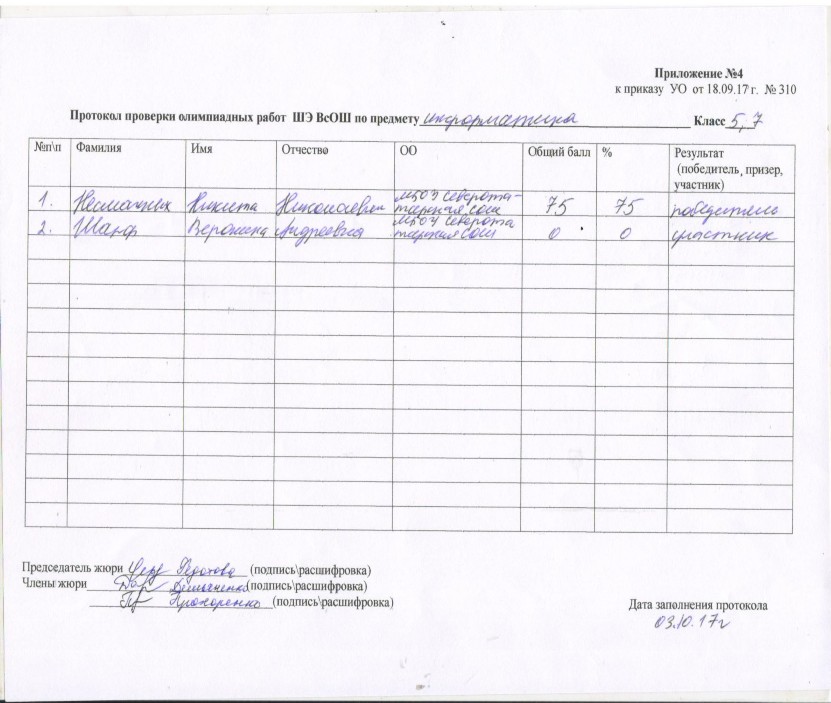 Приложение №4
к приказу УО от 18.09.17 г. № 310
Протокол проверки олимпиадных работ ШЭ ВсОШ по предмету информатика Класс 5, 7
№п\п Фамилия Имя Отчество ОО Общий балл % Результат (победитель, призер, участник)
1. Никита Николаевич МБОУ Северота-
тарская СОШ 75 75 победитель
2. Шанф Вероника Андреевна МБОУ Северота
тарская СОШ 0 0 участник
Председатель жюри Федотова (подпись\расшифровка)
Члены жюри Демьяненко (подпись\расшифровка)
Прохоренко (подпись\расшифровка)
Дата заполнения протокола
03.10.17г